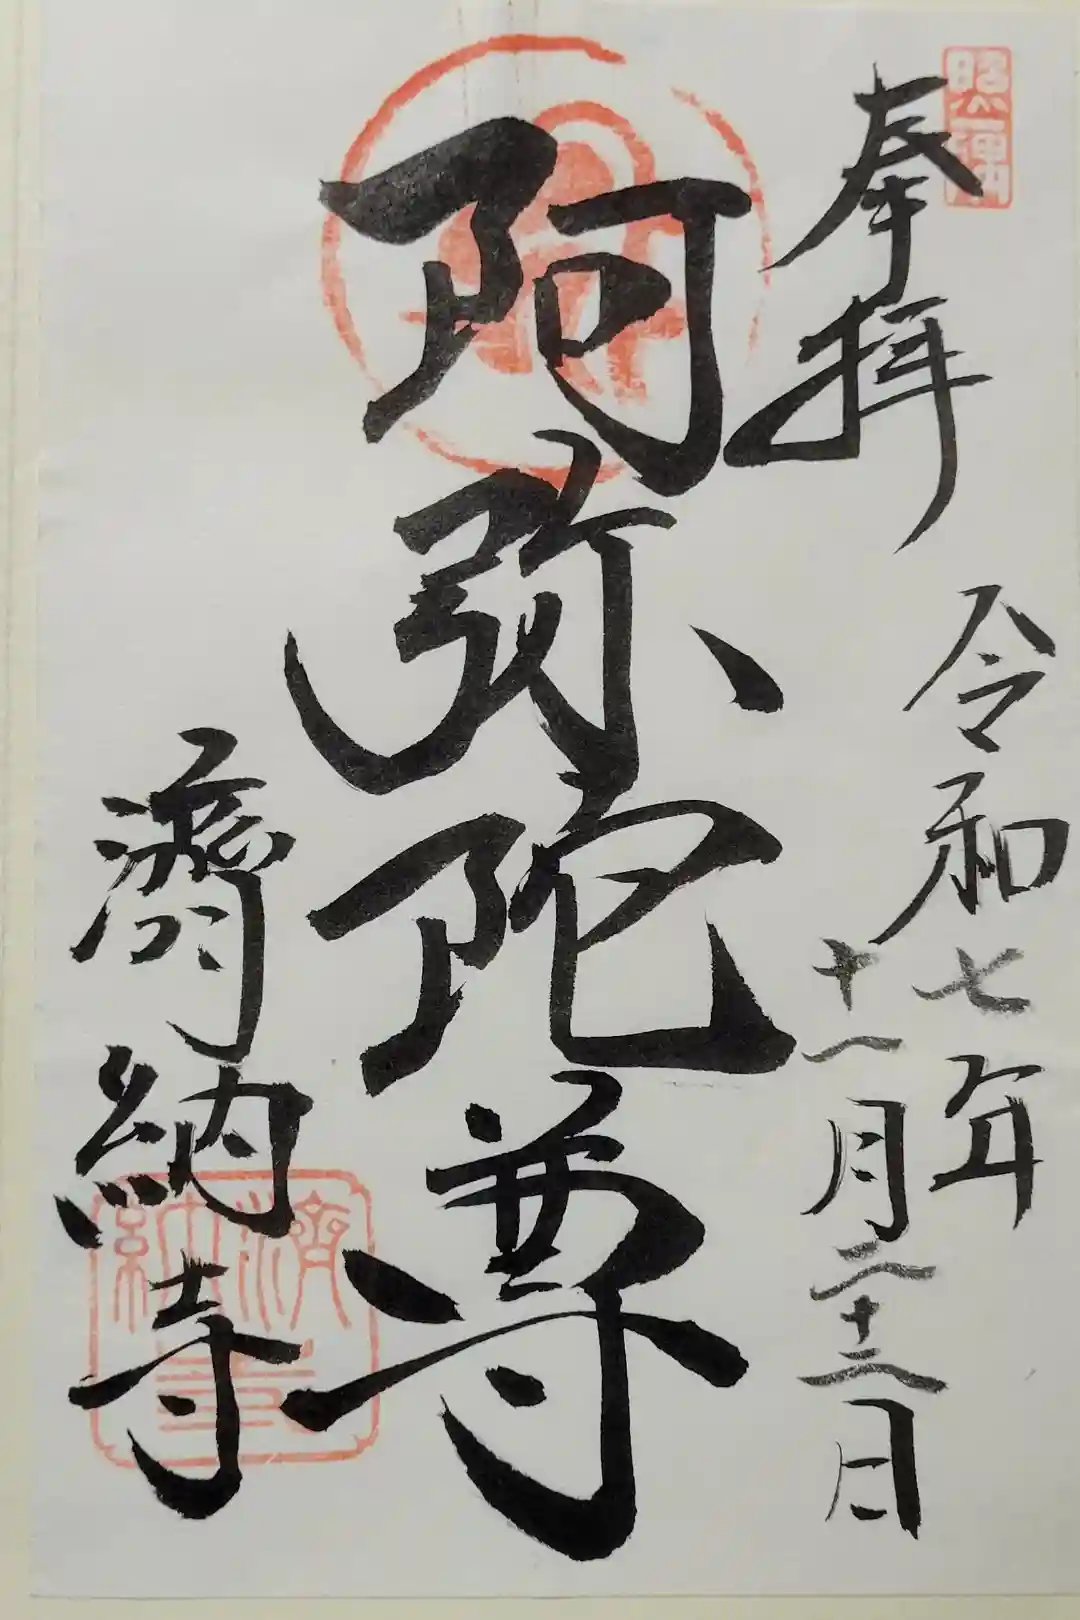 照一隅
奉拝
令和七年
十一月二十二日
阿弥陀尊
濟納寺
濟納寺